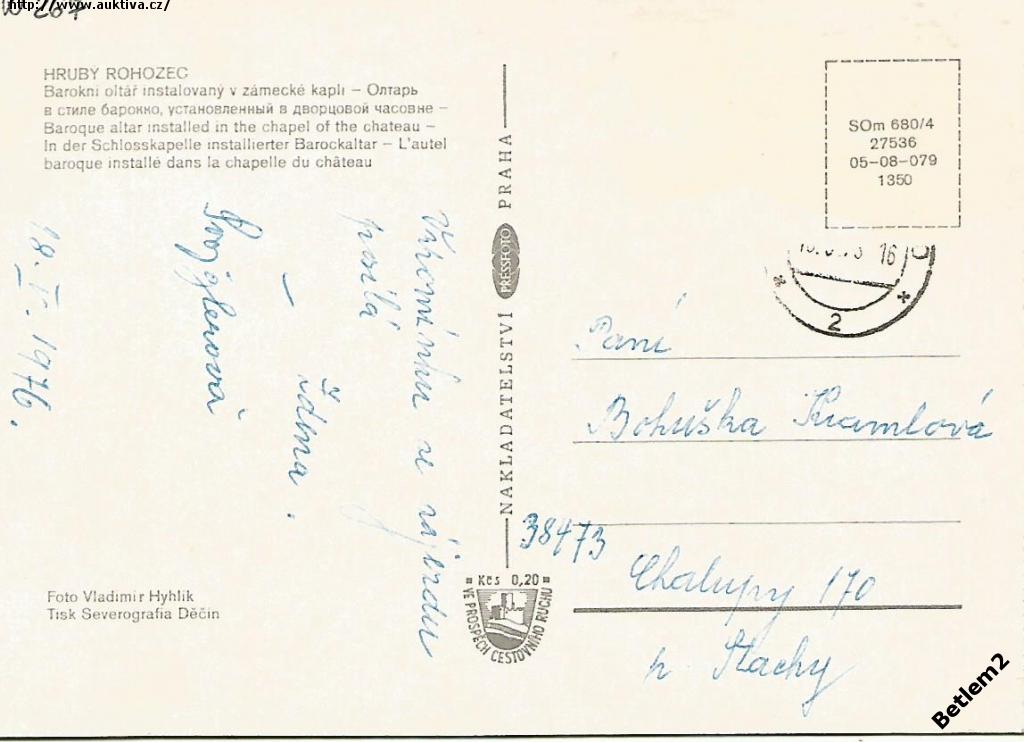 http://www.auktiva.cz/
HRUBÝ ROHOZEC
Barokní oltář instalovaný v zámecké kapli – Олтарь
в стиле барокко, установленный в дворцовой часовне –
Baroque altar installed in the chapel of the chateau –
In der Schlosskapelle installierter Barockaltar – L'autel
baroque installé dans la chapelle du château
SOm 680/4
27536
05-08-079
1350
16
2
Vzpomínku ze zájezdu
posílá
18. 1976.
NAKLADATELSTVÍ PRESSFOTO PRAHA
Paní
Bohuška Kramlová
38473
Chalupy 170
p. Stachy
Kčs 0,20
VE PROSPĚCH CESTOVNÍHO RUCHU
Foto Vladimír Hyhlík
Tisk Severografia Děčín
Betlem2